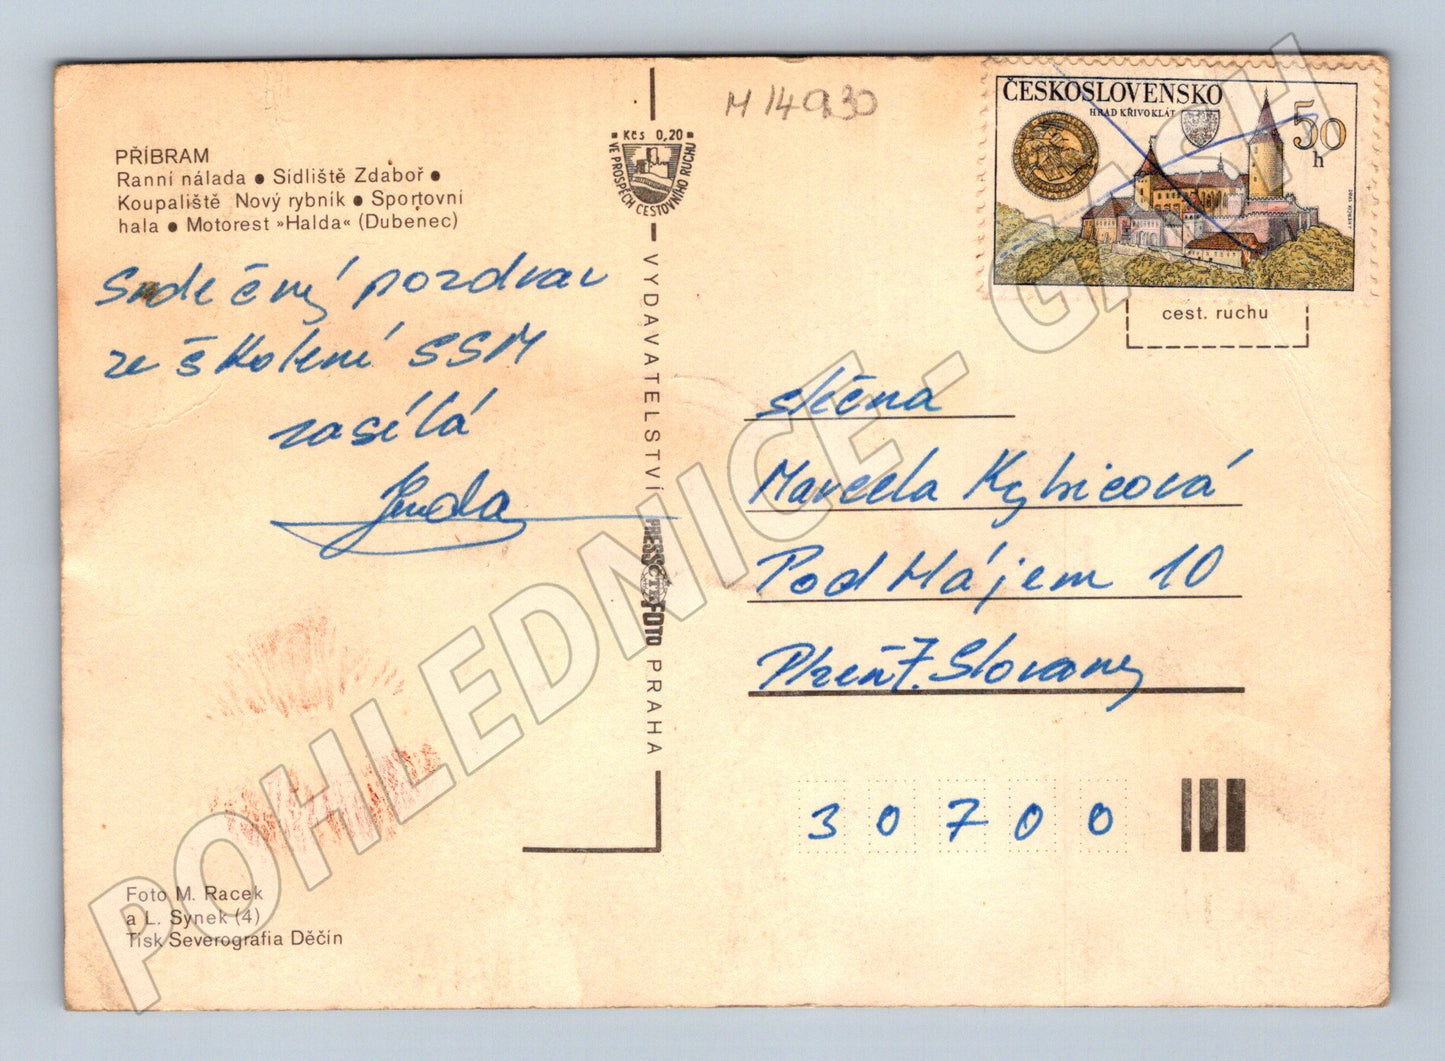 PŘÍBRAM
Ranní nálada • Sídliště Zdaboř •
Koupaliště Nový rybník • Sportovní
hala • Motorest »Halda« (Dubenec)
Srdečný pozdrav
ze školení SSM
zasílá
Foto M. Racek
a L. Synek (4)
Tisk Severografia Děčín
Kčs 0,20
VE PROSPĚCH CESTOVNÍHO RUCHU
VYDAVATELSTVÍ
PRESSFOTO
ČTK
PRAHA
M 14930
ČESKOSLOVENSKO
HRAD KŘIVOKLÁT
50
h
cest. ruchu
slečna
Marcela Kybicová
Pod Hájem 10
Plzeň 7. Slovany
30700
POHLEDNICE - GASH